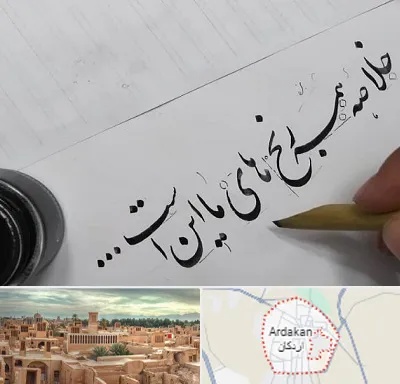 خلاصه همه رنج های ما این است...
Ardakan
اردکان